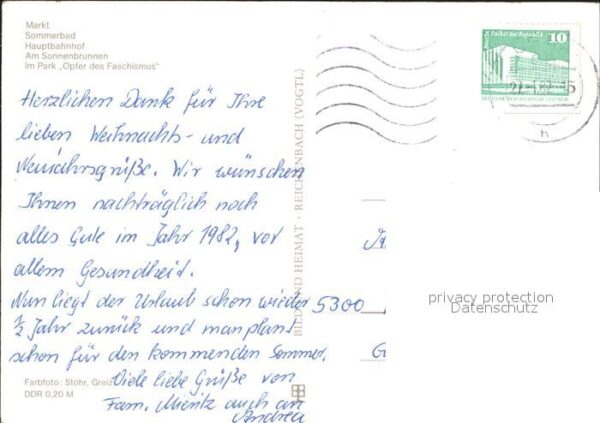 Markt
Sommerbad
Hauptbahnhof
Am Sonnenbrunnen
Im Park „Opfer des Faschismus"
Herzlichen Dank für Ihre
lieben Weihnachts- und
Neujahrsgrüße. Wir wünschen
Ihnen nachträglich noch
alles Gute im Jahr 1982, vor
allem Gesundheit.
Nun liegt der Urlaub schon wieder
1/2 Jahr zurück und man plant
schon für den kommenden Sommer.
Viele liebe Grüße von
Fam. Mieritz auch an
Andrea
Farbfoto: Stöhr, Greiz
DDR 0,20 M
BILD UND HEIMAT · REICHENBACH (VOGTL)
10
Berlin, Palast der Republik
h
5300
privacy protection
Datenschutz